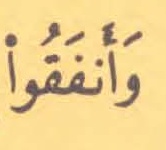 وَأَنفَقُواْ